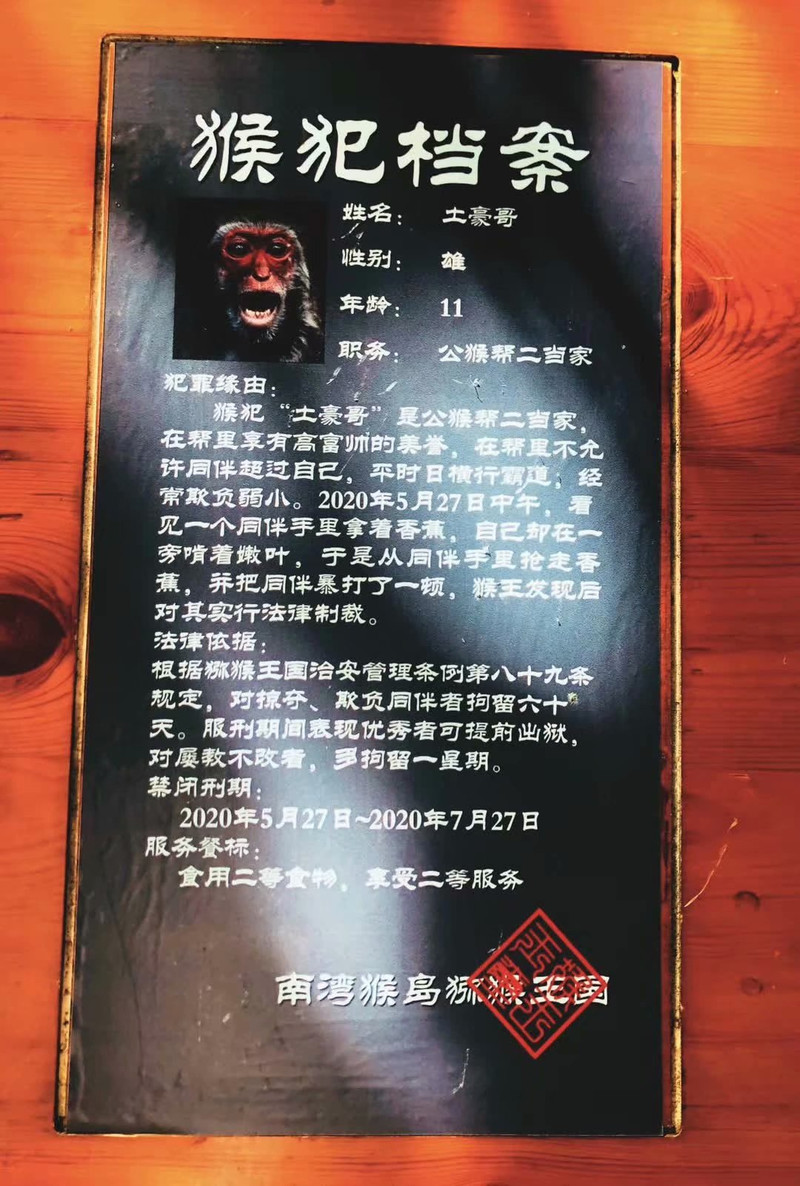 猴犯档案
姓名： 土豪哥
性别： 雄
年龄： 11
职务： 公猴帮二当家
犯罪缘由：
猴犯“土豪哥”是公猴帮二当家，
在帮里享有高富帅的美誉，在帮里不允
许同伴超过自己，平时日横行霸道，经
常欺负弱小。2020年5月27日中午，看
见一个同伴手里拿着香蕉，自己却在一
旁啃着嫩叶，于是从同伴手里抢走香
蕉，并把同伴暴打了一顿，猴王发现后
对其实行法律制裁。
法律依据：
根据猕猴王国治安管理条例第八十九条
规定，对掠夺、欺负同伴者拘留六十
天。服刑期间表现优秀者可提前出狱，
对屡教不改者，多拘留一星期。
禁闭刑期：
2020年5月27日~2020年7月27日
服务餐标：
食用二等食物，享受二等服务
南湾猴岛猕猴王国